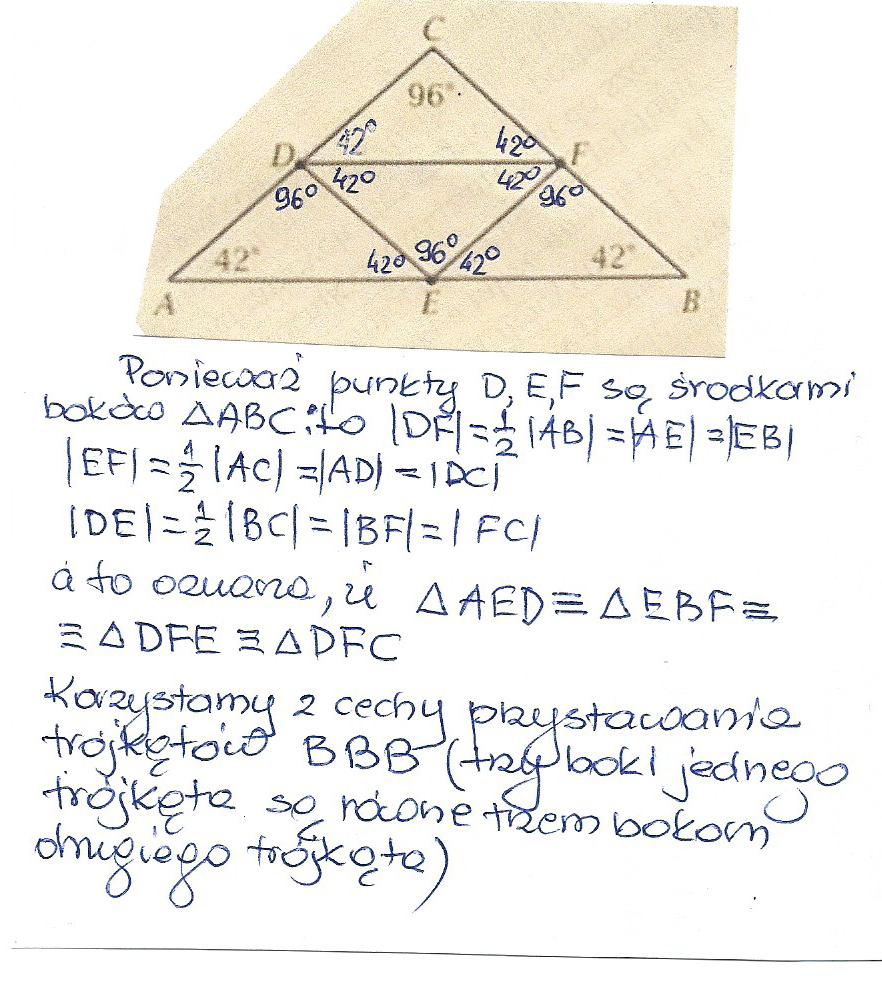 C
96°
D 42° 42° F
96° 42° 42° 96°
42° 42° 96° 42° 42°
A E B
Ponieważ punkty D, E, F są środkami
boków △ABC: to |DF| = 1/2 |AB| = |AE| = |EB|
|EF| = 1/2 |AC| = |AD| = |DC|
|DE| = 1/2 |BC| = |BF| = |FC|
a to oznana, iż △AED ≡ △EBF ≡
≡ △DFE ≡ △DFC
Korzystamy z cechy przystawania
trójkątów BBB (trzy boki jednego
trójkąta są równe trzem bokom
drugiego trójkąta)